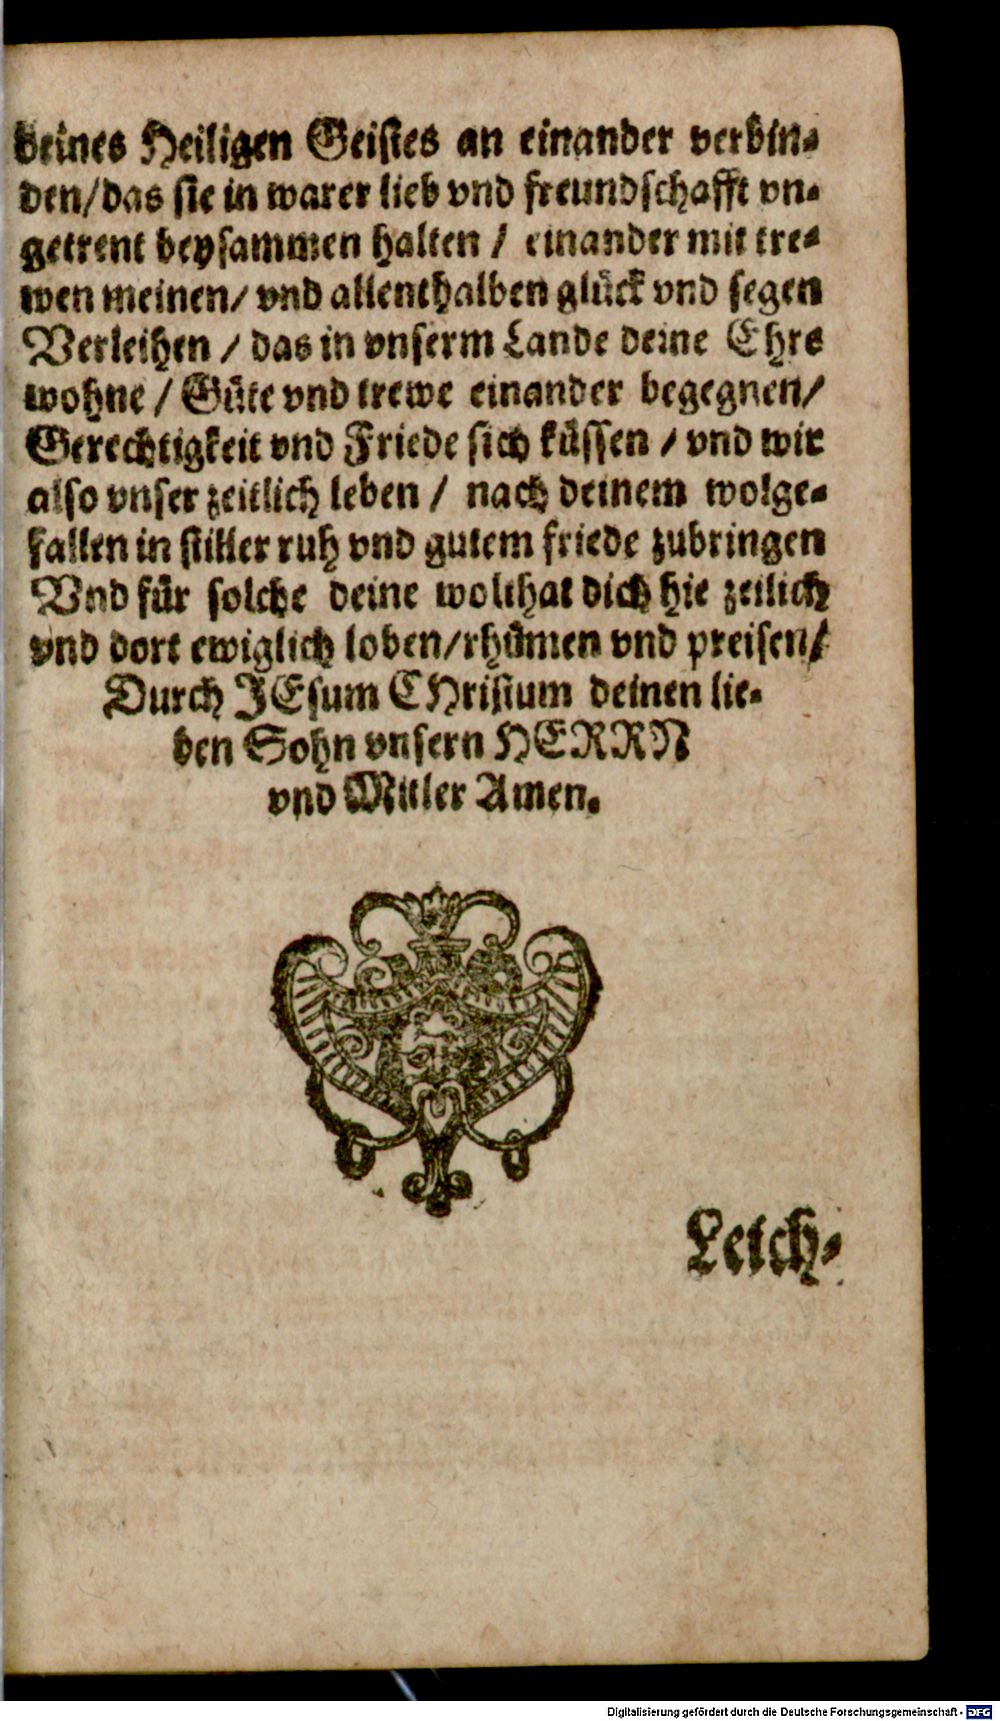 deines Heiligen Geistes an einander verbin-
den/das sie in warer lieb vnd freundschafft vn-
getrent beysammen halten / einander mit tre-
wen meinen/ vnd allenthalben glück vnd segen
Verleihen / das in vnserm Lande deine Ehre
wohne / Güte vnd trewe einander begegnen/
Gerechtigkeit vnd Friede sich küssen / vnd wir
also vnser zeitlich leben / nach deinem wolge-
fallen in stiller ruh vnd gutem friede zubringen
Vnd für solche deine wolthat dich hie zeitlich
vnd dort ewiglich loben/rhümen vnd preisen/
Durch JEsum CHristum deinen lie-
ben Sohn vnsern HERRN
vnd Mitler Amen.
Leich-
Digitalisierung gefördert durch die Deutsche Forschungsgemeinschaft - DFG